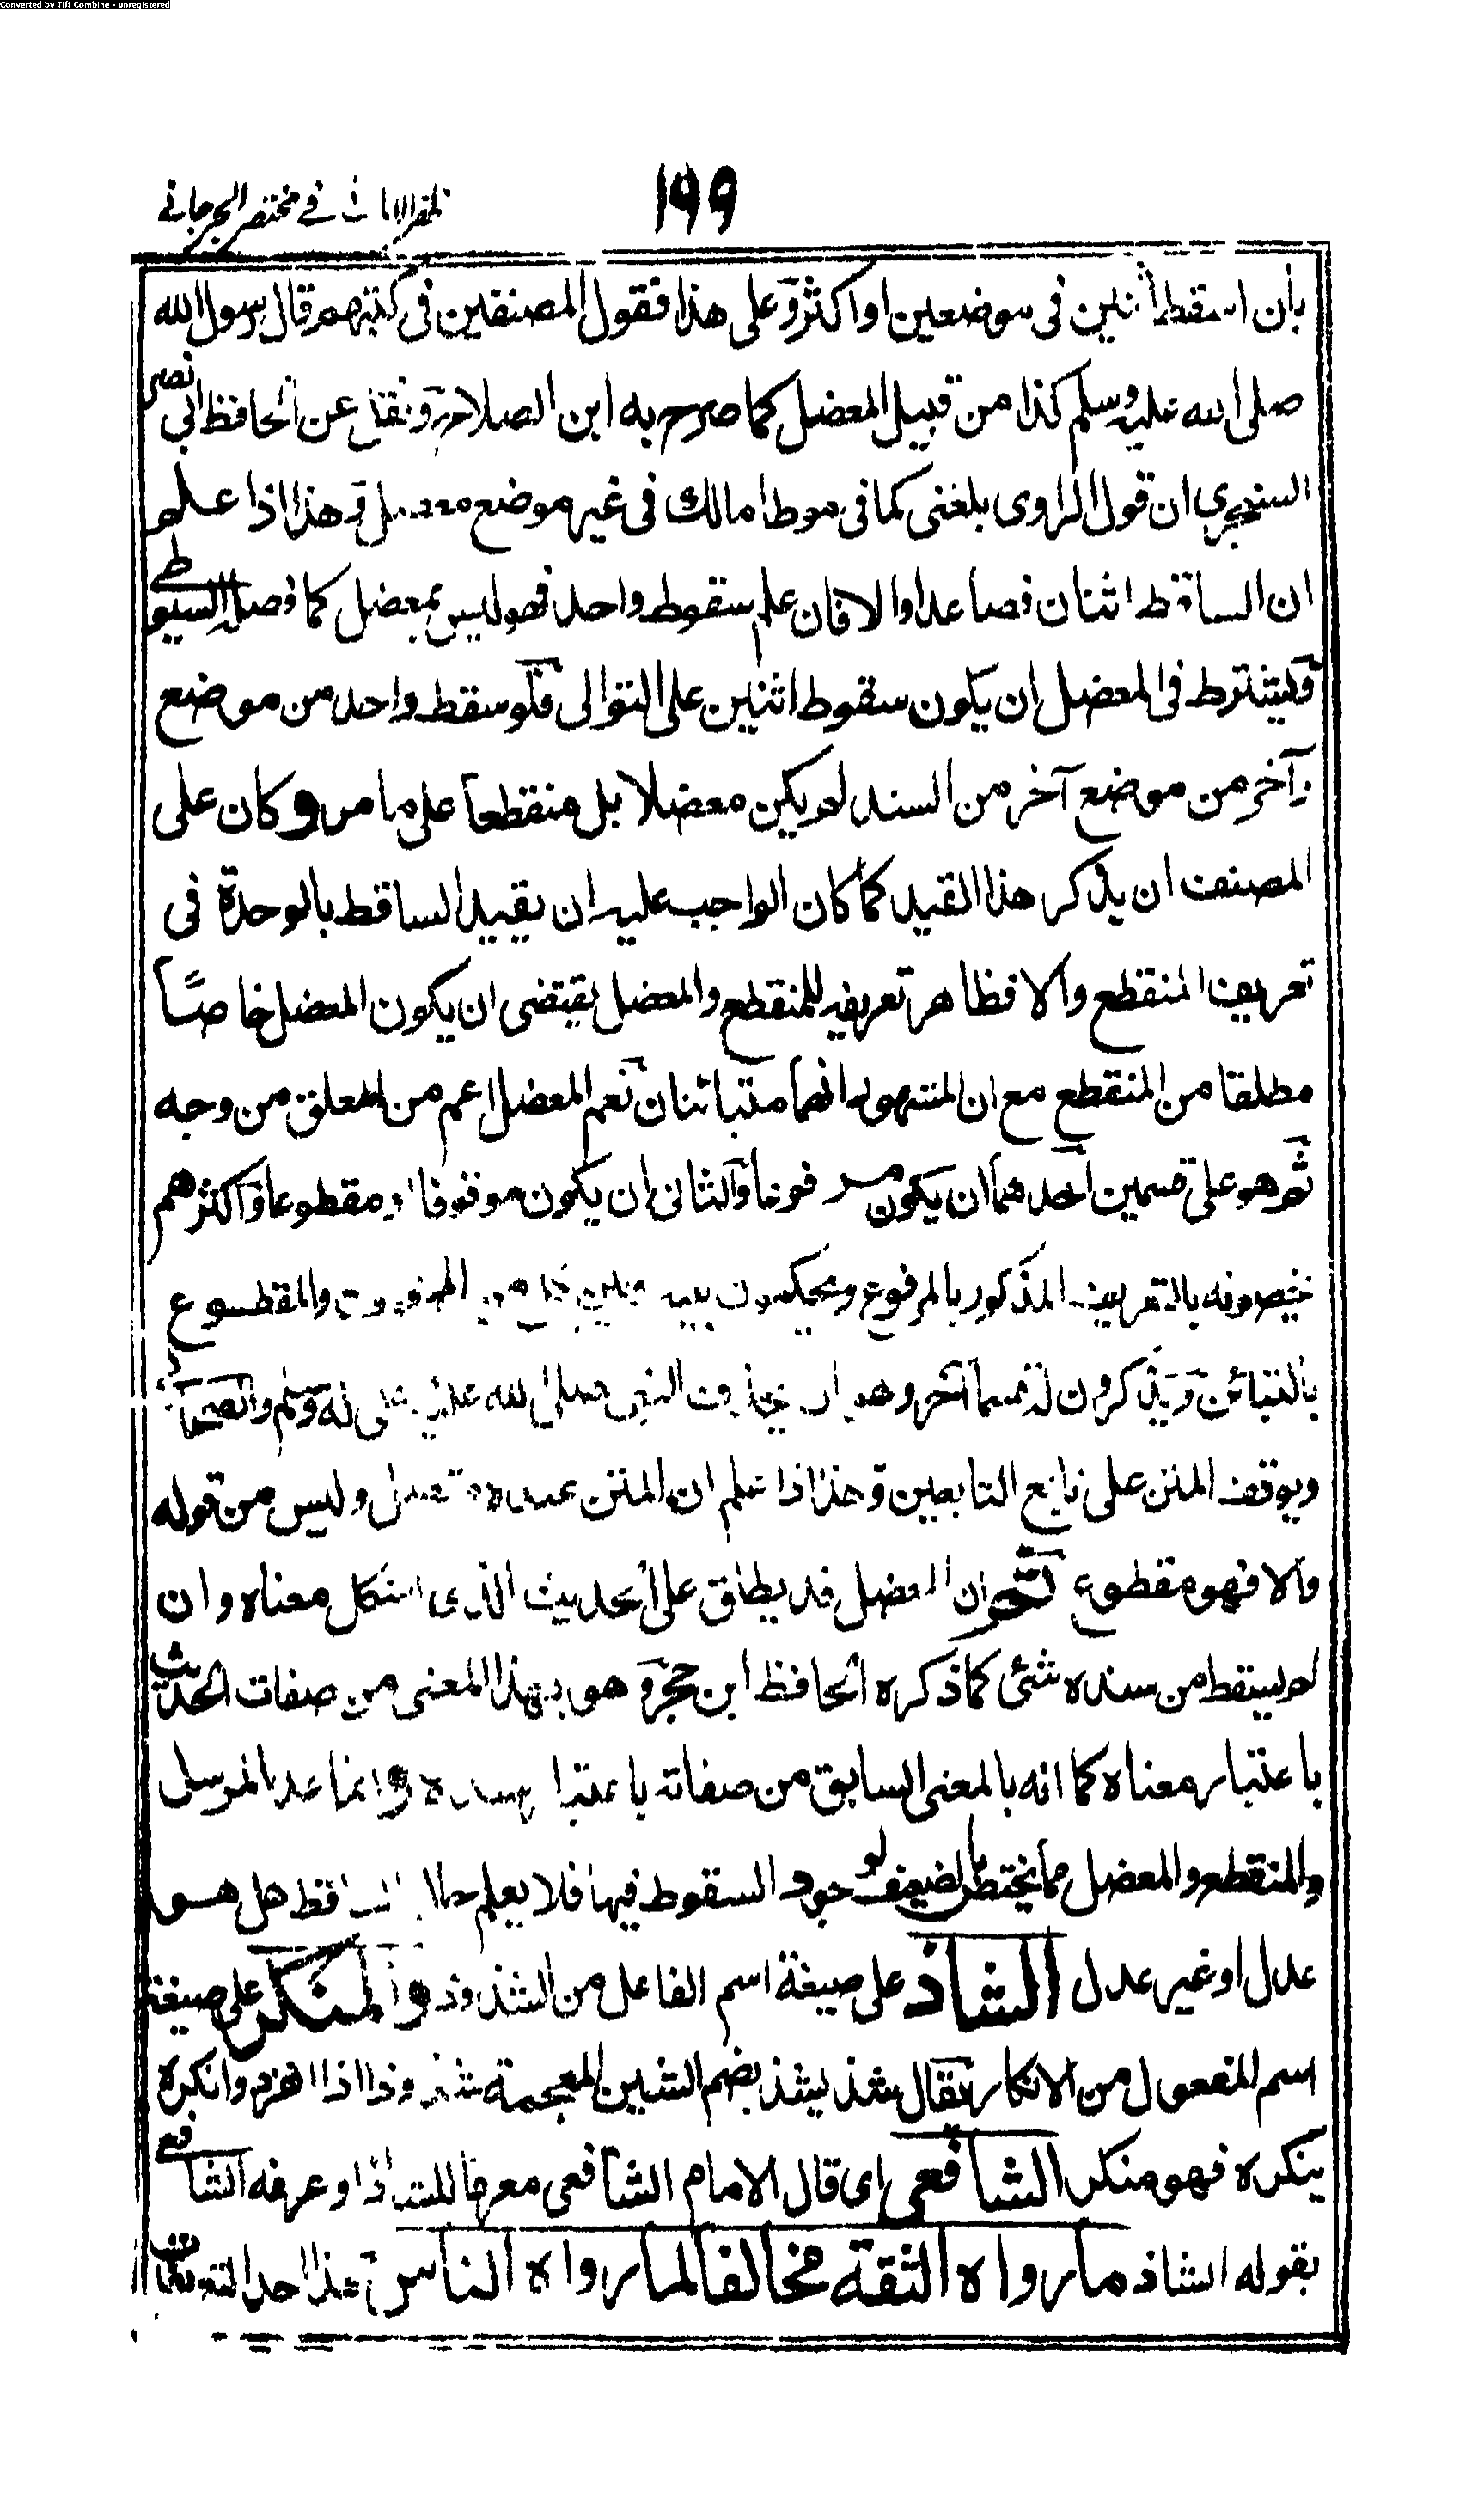 Converted by Tiff Combine - unregistered
١٩٩
ظفر الامانى فى مختصر الجرجانى
بان اسقط اثنين فى موضعين او اكثر وعلى هذا فقول المصنفين فى كتبهم قال رسول الله
صلى الله عليه وسلم كذا من قبيل المعضل كما صرح به ابن الصلاح ونقل عن الحافظ ابى نصر
السنجرى ان قول الراوى بلغنى كما فى موطا مالك فى غير موضع هذا اذا علم
ان الساقط اثنان فصاعدا والا فان علم سقوط واحد فهو ليس بمعضل كما فصله السيوطى
فليشترط فى المعضل ان يكون سقوط اثنين على التوالى فلو سقط واحد من موضع
وآخر من موضع آخر من السند لم يكن معضلا بل منقطعا على ما مر وكان على
المصنف ان يذكر هذا القيد كما كان الواجب عليه ان يقيد الساقط بالوحدة فى
تعريف المنقطع والا فظاهر تعريفه للمنقطع والمعضل يقتضى ان يكون المعضل خاصًا
مطلقا من المنقطع مع ان المشهور انهما متبائنان نعم المعضل اعم من المعلق من وجه
ثم هو على قسمين احدهما ان يكون مرفوعا والثانى ان يكون موقوفا او مقطوعا واكثرهم
يخصونه بالتعريف المذكور بالمرفوع ويحكمون والمقطوع
بالتبائن ويذكرون له قسما آخر وهو ان يحذف النبى صلى الله عليه وعلى آله وسلم والصحابى
ويوقف المتن على تابع التابعين وهذا اذا علم ان المتن وليس من قوله
والا فهو مقطوع ثم ان المعضل قد يطلق على الحديث الذى اشكل معناه وان
لم يسقط من سنده شئ كما ذكره الحافظ ابن حجر وهو بهذا المعنى من صفات الحديث
باعتبار معناه كما انه بالمعنى السابق من صفاته باعتبار سنده وانما عد المرسل
والمنقطع والمعضل مما يختص بالضعيف لوجود السقوط فيها فلا يعلم حال الساقط هل هو
عدل او غير عدل الشاذ على صيغة اسم الفاعل من الشذوذ والمنكر على صيغة
اسم المفعول من الانكار يقال شذ يشذ بضم الشين المعجمة شذوذا اذا انفرد وانكره
ينكره فهو منكر الشافعى اى قال الامام الشافعى معرفا للشاذ او عرفه الشافعى
بقوله الشاذ ما رواه الثقة مخالفا لما رواه الناس هذا احد التعريفات